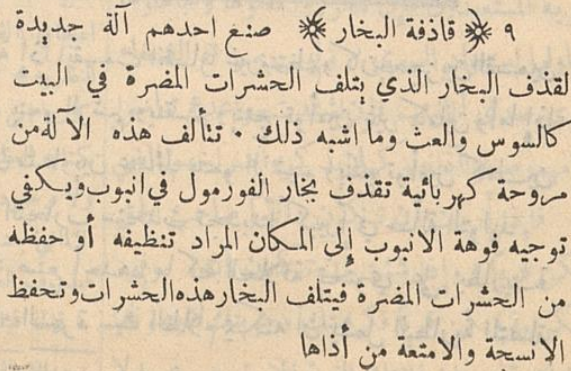 ٩ ﴿ قاذفة البخار ﴾ صنع احدهم آلة جديدة
لقذف البخار الذي يتلف الحشرات المضرة في البيت
كالسوس والعث وما اشبه ذلك ٠ تتألف هذه الآلة من
مروحة كهربائية تقذف بخار الفورمول في انبوب ويكفي
توجيه فوهة الانبوب إلى المكان المراد تنظيفه أو حفظه
من الحشرات المضرة فيتلف البخار هذه الحشرات وتحفظ
الانسجة والامتعة من أذاها